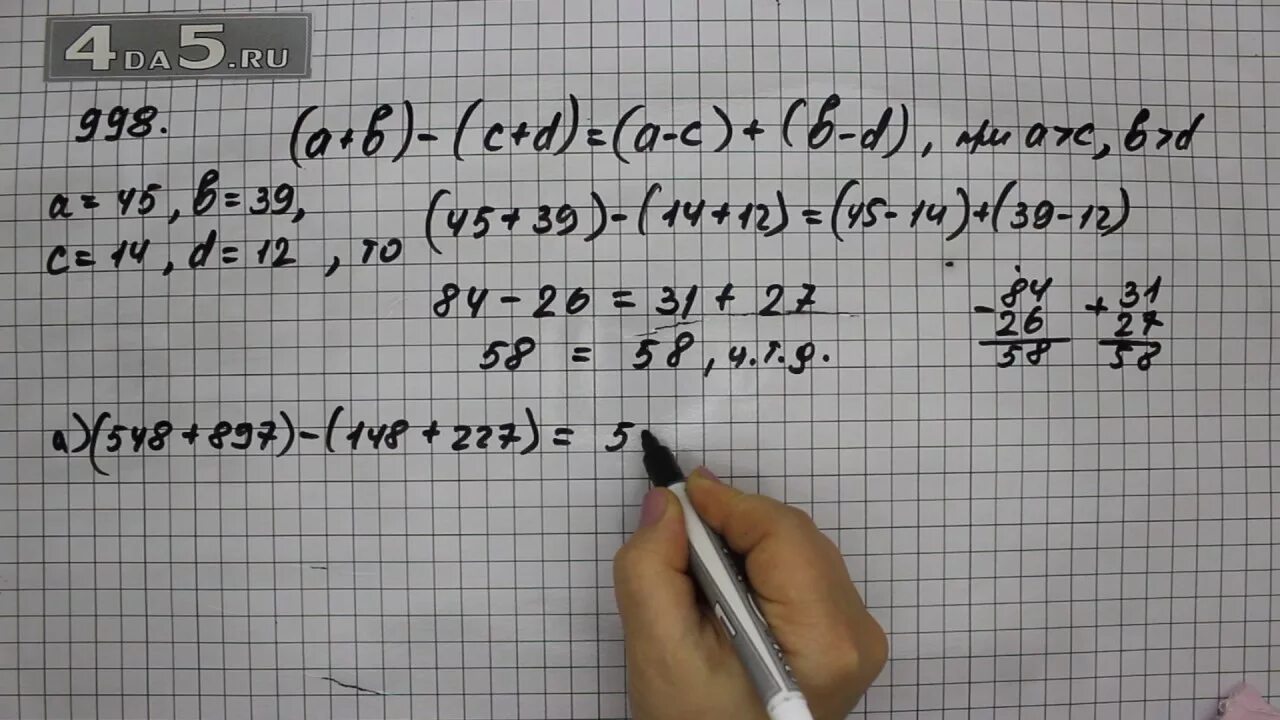 4DA5.RU
998. (a+b)-(c+d)=(a-c)+(b-d), при a>c, b>d
a=45, b=39,
c=14, d=12, то
(45+39)-(14+12)=(45-14)+(39-12)
84-26=31+27
58=58, ч.т.д.
84
-26
58
+31
27
58
а)(548+897)-(148+227)= 5